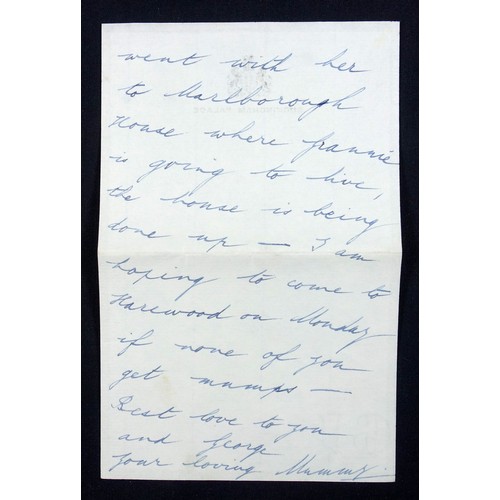 went with her
to Marlborough
House where grannie
is going to live,
the house is being
done up — I am
hoping to come to
Harewood on Monday
if none of you
get mumps —
Best love to you
and George
your loving Mummy.